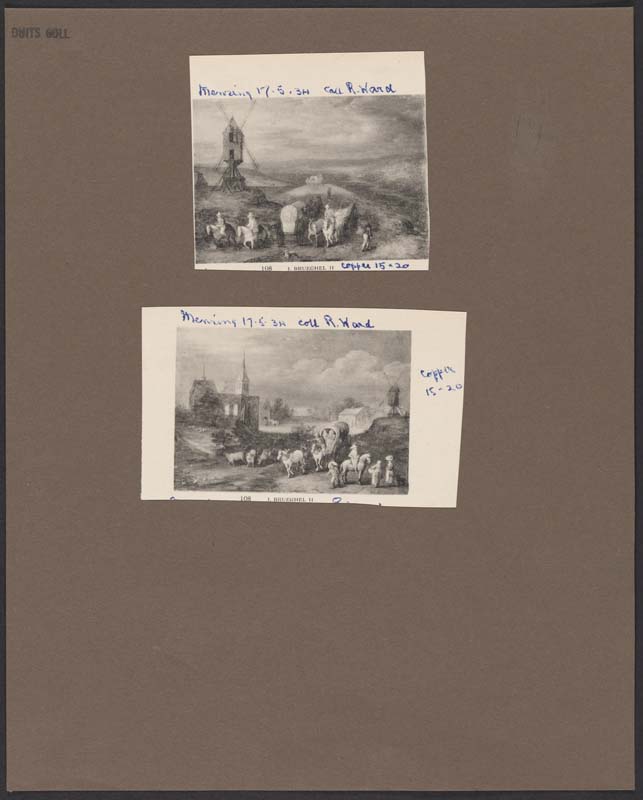 DWITS COLL
Mensing 17.5.34 coll R. Ward
108 J. BRUEGHEL II copper 15-20
Mensing 17.5.34 coll R. Ward
copper
15-20
108 J. BRUEGHEL II